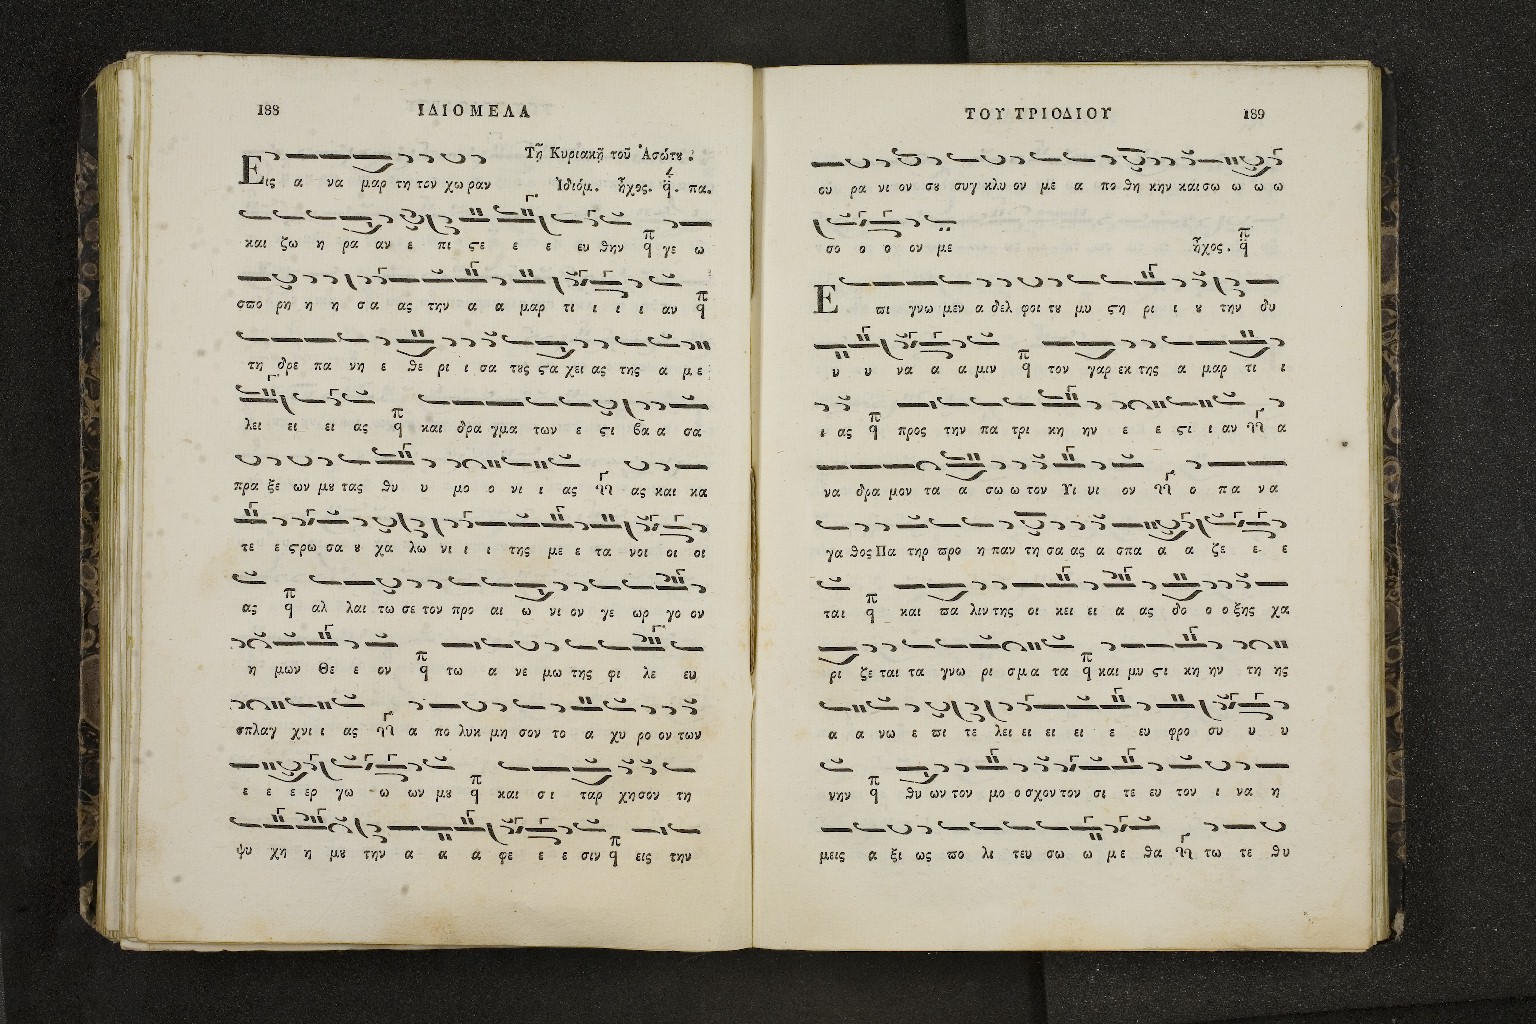 188 ΙΔΙΟΜΕΛΑ
Τῇ Κυριακῇ τοῦ Ἀσώτȣ.
Εις α να μαρ τη τον χω ραν Ἰδιόμ. ἦχος. q̈. πα.
και ζω η ρα αν ε πι ϛε ε ε ευ θην q γε ω
σπο ρη η η σ α ας την α α μαρ τι ι ι ι αν q
τη δρε πα νη ε θε ρι ι σα τȣς ϛα χει ας της α με
λει ει ει ας q και δρα γμα των ε ϛι βα α σα
πρα ξε ων μȣ τας θυ υ μο ο νι ι ας ας και κα
τε ε ϛρω σα ȣ χα λω νι ι ι της με ε τα νοι οι οι
ας q αλ λαι τω σε τον προ αι ω νι ον γε ωρ γο ον
η μων Θε ε ον q τω α νε μω της φι λε ευ
σπλαγ χνι ι ας α πο λυκ μη σον το α χυ ρο ον των
ε ε ε ερ γω ω ων μȣ q και σι ταρ χησον τη
ψυ χη η μȣ την α α α φε ε ε σιν q εις την
ΤΟΥ ΤΡΙΩΔΙΟΥ 189
ου ρα νι ον σȣ συγ κλυ ον με α πο θη κην και σω ω ω ω
σο ο ο ον με ἦχος. q̈
Ε πι γνω μεν α δελ φοι τȣ μυ ϛη ρι ι ȣ την δυ
υ υ να α α μιν q τον γαρ εκ της α μαρ τι ι
ι ας q προς την πα τρι κη ην ε ε ϛι ι αν α
να δρα μον τα α σω ω τον Υι υι ον ο πα να
γα θος Πα τηρ προ η παν τη σα ας α σπα α α ζε ε ε
ται q και πα λιν της οι κει ει α ας δο ο ο ξης χα
ρι ζε ται τα γνω ρι σμα τα q και μυ ϛι κη ην τη ης
α α νω ε πι τε λει ει ει ει ε ευ φρο συ υ υ
νην q θυ ων τον μο ο σχον τον σι τε ευ τον ι να η
μεις α ξι ως πο λι τευ σω ω με θα τω τε θυ